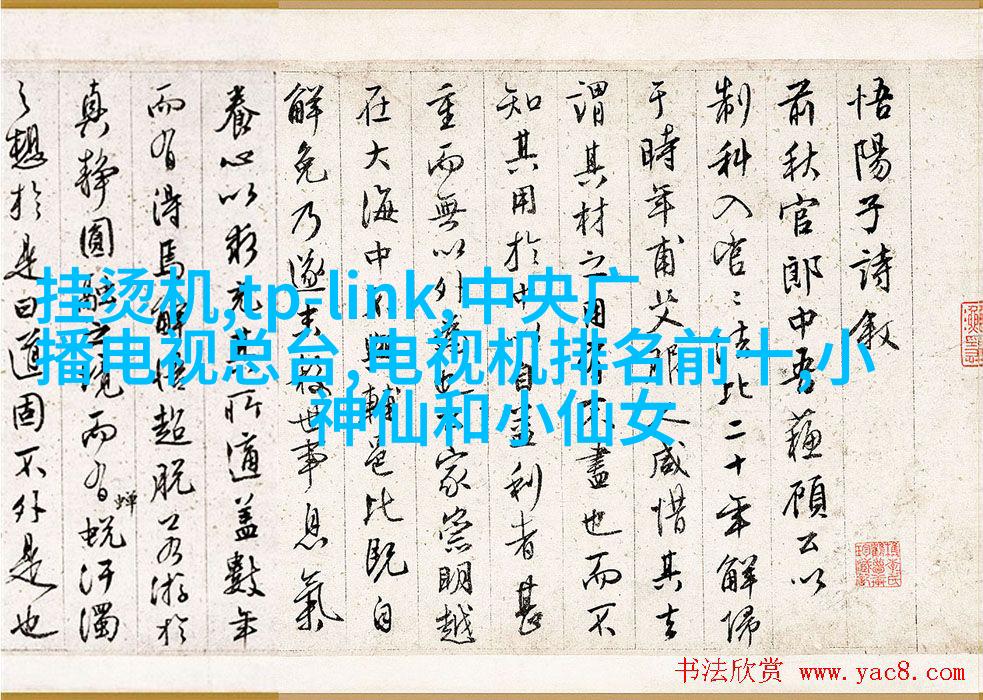 悟陽子詩敘
前秋官郎中吾蘓顧公以
制科入官比二十年解歸
于時年甫人咸惜其去
謂其材之用不盡也而不
知其用於自盡利者甚
重而無以外家崇明越
在大海中不與輔邑比既自
解免乃遂去世事息氣
養心以所適蓋數年
而有得焉解超脫游於
真靜圓融之境而有蟬蛻汙濁
之想於是曰道固不外是也
挂烫机,tp-link,中央广
播电视总台,电视机排名前十,小
神仙和小仙女
书法欣赏 www.yac8.com